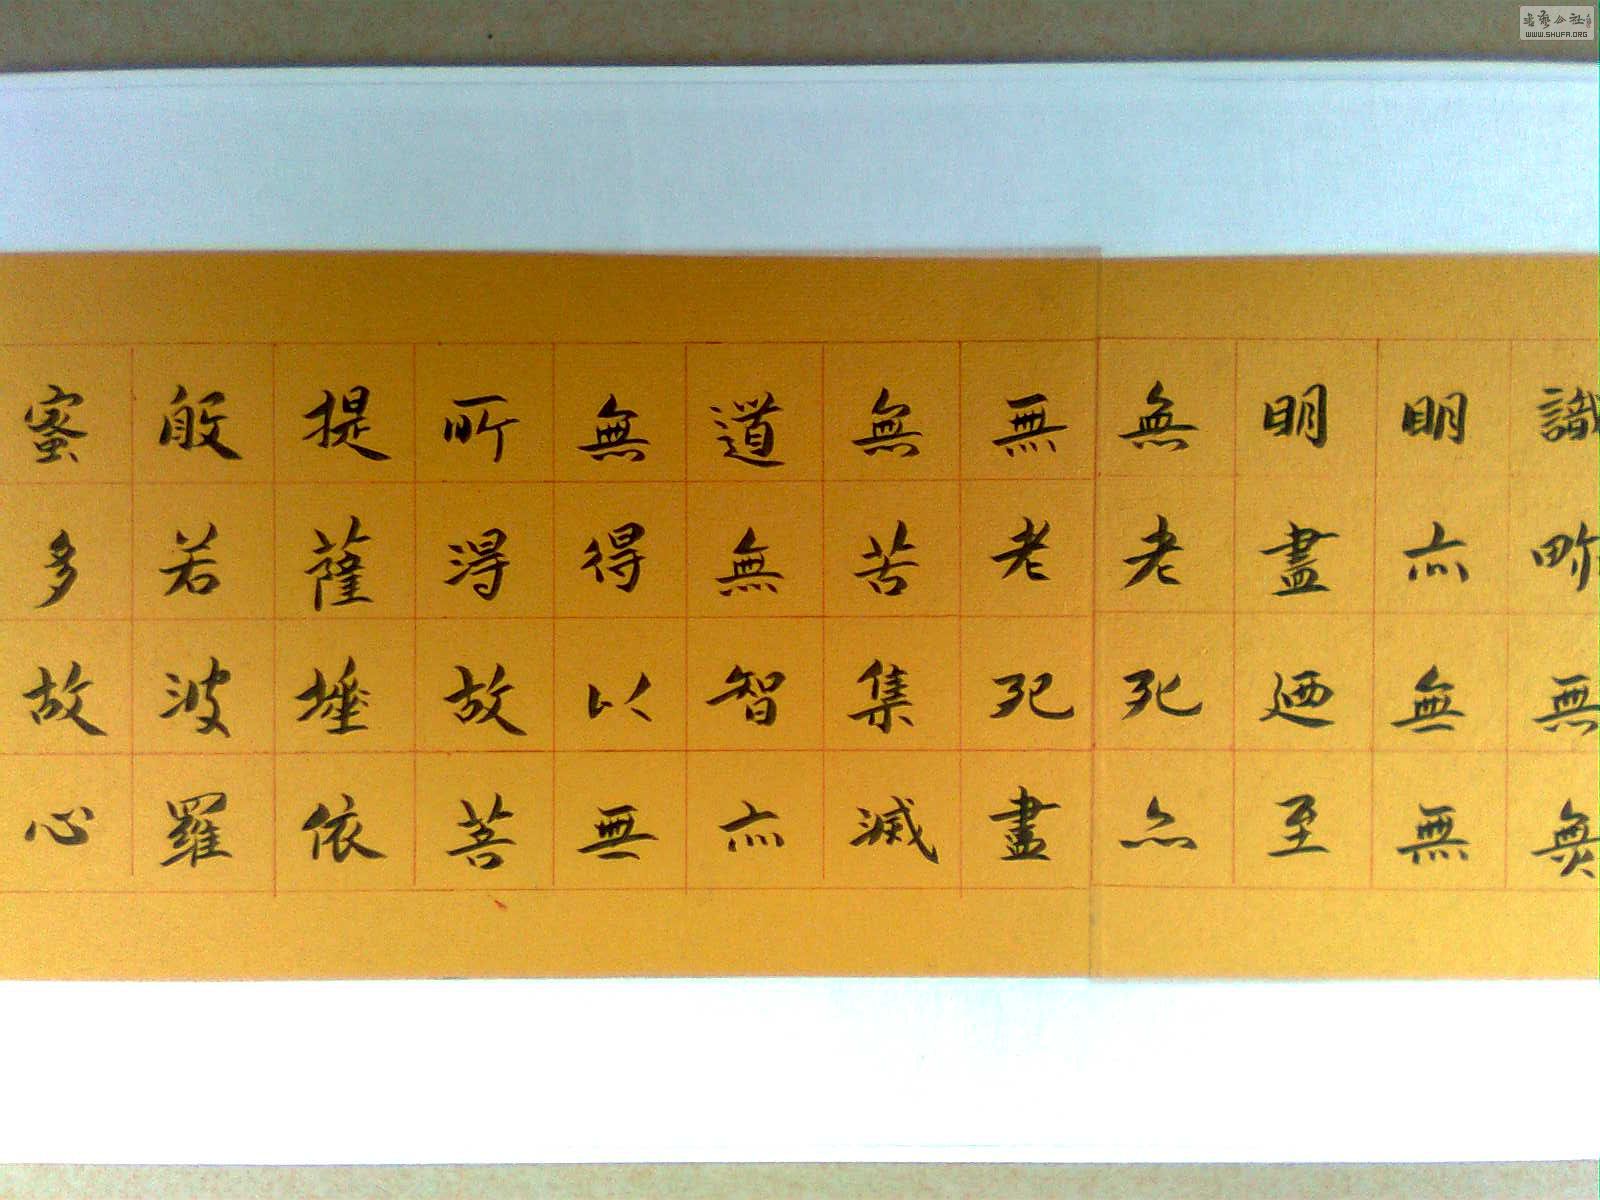 識畍無無
明亦無無
明盡迺至
無老死亦
無老死盡
無苦集滅
道無智亦
無得以無
所得故菩
提薩埵依
般若波羅
蜜多故心
書藝公社
WWW.SHUFA.ORG